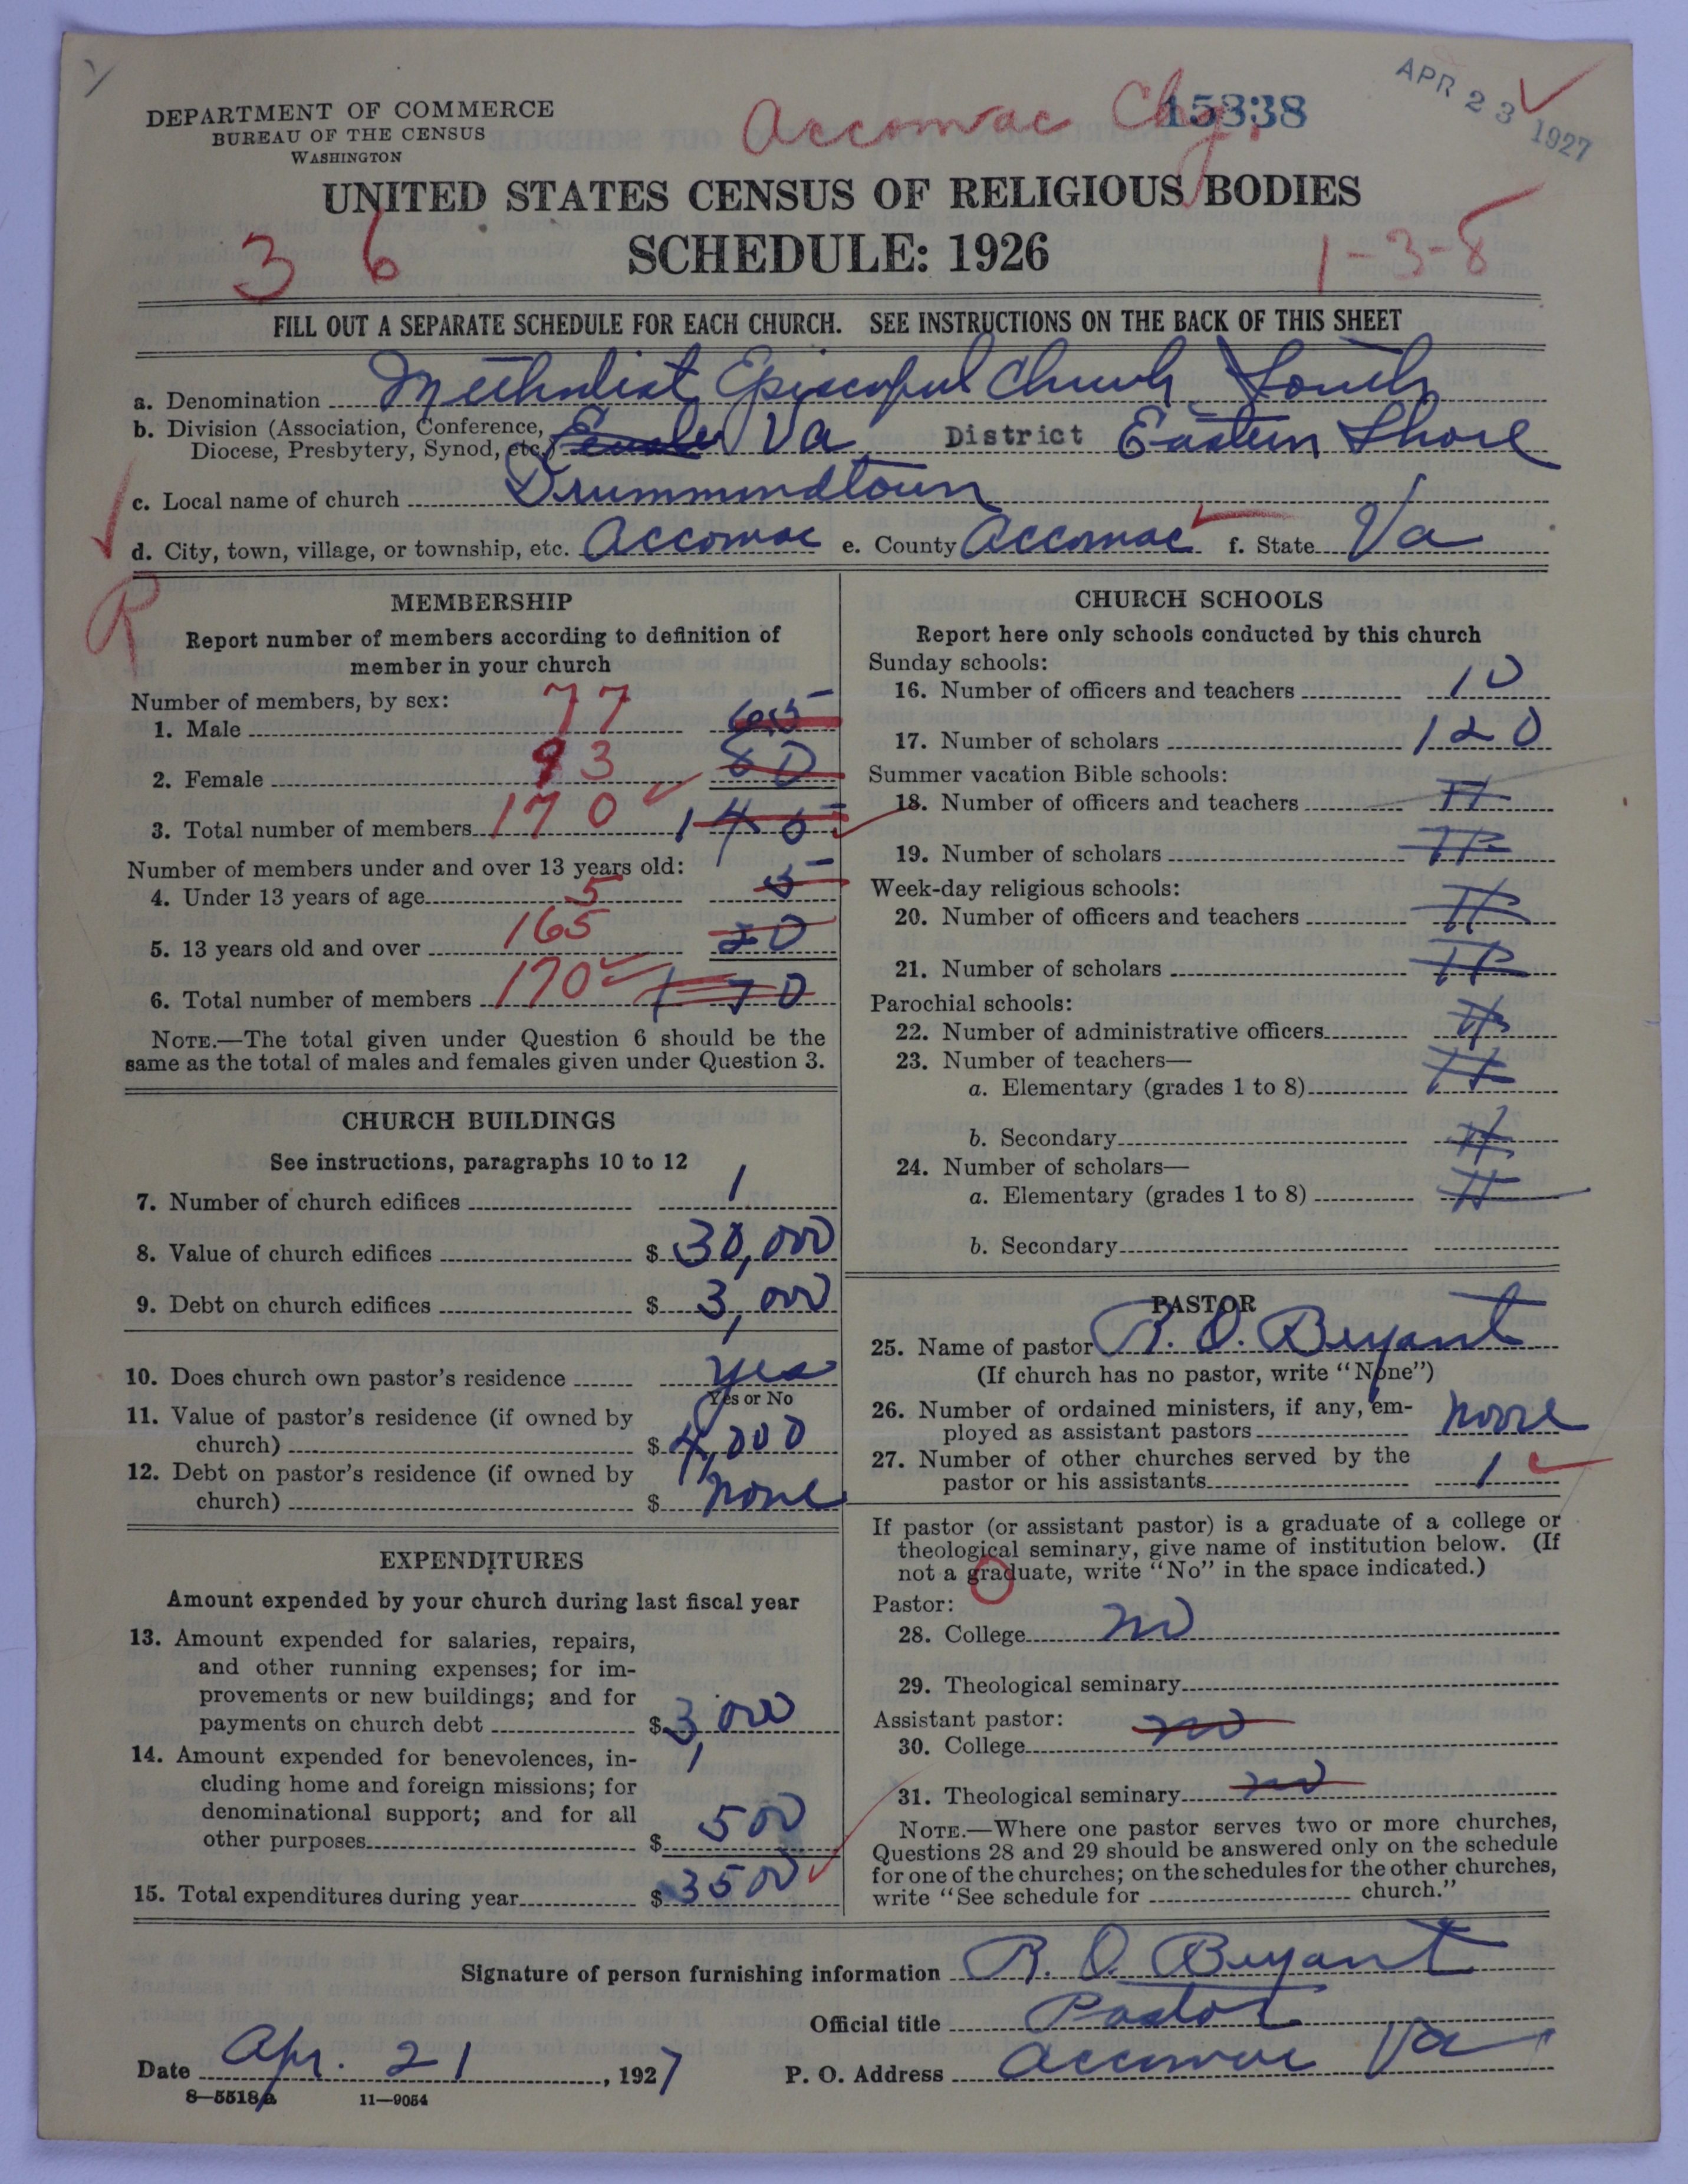 DEPARTMENT OF COMMERCE
BUREAU OF THE CENSUS
WASHINGTON
Accomac Chg.
15338
APR 23 1927
UNITED STATES CENSUS OF RELIGIOUS BODIES
36
SCHEDULE: 1926
1-3-8
FILL OUT A SEPARATE SCHEDULE FOR EACH CHURCH. SEE INSTRUCTIONS ON THE BACK OF THIS SHEET
a. Denomination Methodist Episcopal Church, South
b. Division (Association, Conference, Diocese, Presbytery, Synod, etc.) Va District Eastern Shore
c. Local name of church Drummondtown
d. City, town, village, or township, etc. Accomac e. County Accomac f. State Va
R
MEMBERSHIP
Report number of members according to definition of
member in your church
Number of members, by sex:
1. Male 77 65
2. Female 93 80
3. Total number of members 170 145
Number of members under and over 13 years old:
4. Under 13 years of age 5 5
5. 13 years old and over 165
6. Total number of members 170 170
NOTE.—The total given under Question 6 should be the
same as the total of males and females given under Question 3.
CHURCH BUILDINGS
See instructions, paragraphs 10 to 12
7. Number of church edifices 1
8. Value of church edifices $ 30,000
9. Debt on church edifices $ 3,000
10. Does church own pastor's residence yes
Yes or No
11. Value of pastor's residence (if owned by
church) $ 4,000
12. Debt on pastor's residence (if owned by
church) $ none
EXPENDITURES
Amount expended by your church during last fiscal year
13. Amount expended for salaries, repairs,
and other running expenses; for im-
provements or new buildings; and for
payments on church debt $ 3,000
14. Amount expended for benevolences, in-
cluding home and foreign missions; for
denominational support; and for all
other purposes $ 500
15. Total expenditures during year $ 3500
CHURCH SCHOOLS
Report here only schools conducted by this church
Sunday schools:
16. Number of officers and teachers 10
17. Number of scholars 120
Summer vacation Bible schools:
18. Number of officers and teachers
19. Number of scholars
Week-day religious schools:
20. Number of officers and teachers
21. Number of scholars
Parochial schools:
22. Number of administrative officers
23. Number of teachers—
a. Elementary (grades 1 to 8)
b. Secondary
24. Number of scholars—
a. Elementary (grades 1 to 8)
b. Secondary
PASTOR
25. Name of pastor R. O. Bryant
(If church has no pastor, write "None")
26. Number of ordained ministers, if any, em-
ployed as assistant pastors none
27. Number of other churches served by the
pastor or his assistants 1
If pastor (or assistant pastor) is a graduate of a college or
theological seminary, give name of institution below. (If
not a graduate, write "No" in the space indicated.)
Pastor:
28. College no
29. Theological seminary
Assistant pastor:
30. College no
31. Theological seminary no
NOTE.—Where one pastor serves two or more churches,
Questions 28 and 29 should be answered only on the schedule
for one of the churches; on the schedules for the other churches,
write "See schedule for church."
Signature of person furnishing information R. O. Bryant
Official title Pastor
Date Apr. 21, 1927 P. O. Address Accomac Va
8—5518a 11—9054